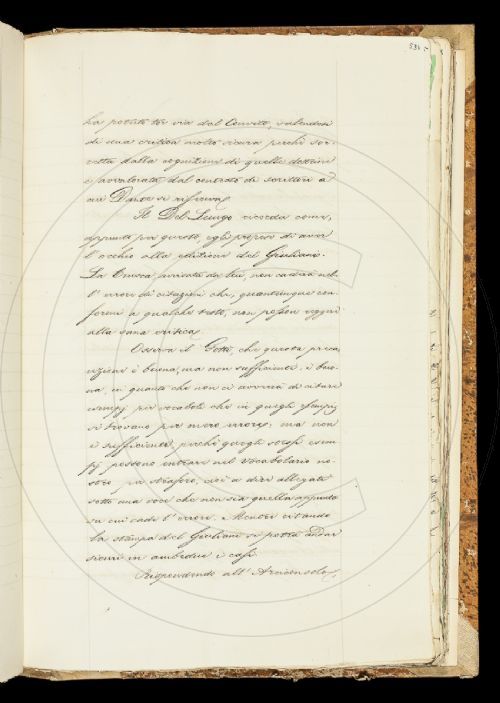 ha potuto tor via dal Convito, valendosi
di una critica molto sicura perchè sor-
retta dalla cognizione di quelle dottrine
e avvalorata dal contesto di scrittori a
cui Dante si riferiva.
Il Del Lungo ricorda come,
appunto per questo, egli propose di aver
l'occhio alla edizione del Giuliani.
La Crusca, avvisata da lui, non cadrà nel-
l'errore di citazioni che, quantunque con-
formi a qualche testo, non possono reggere
alla sana critica.
Osserva il Gotti, che questa precau-
zione è buona, ma non sufficiente. È buo-
na, in quanto che non ci avverrà di citare
esempj per vocaboli che in quegli esempj
si trovano per mero errore; ma non
è sufficiente, perchè quegli stessi esem-
pj possono entrare nel Vocabolario no-
stro per straforo, cioè a dire allegati
sotto una voce che non sia quella appunto
su cui cade l'errore. Mentre citando
la stampa del Giuliani si potrà andar
sicuri in ambedue i casi.
Rispondendo all'Arciconsolo,